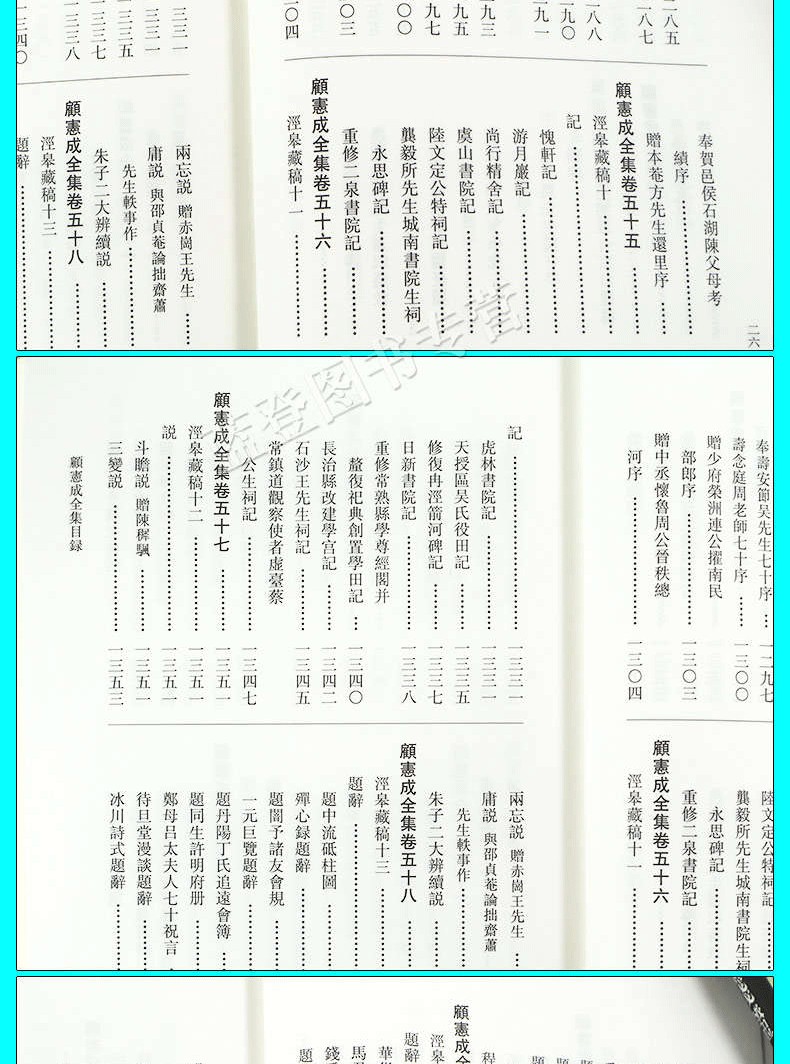 一八五
一八七
一八八
一九〇
一九一
一九三
一九五
一九七
二〇〇
二〇三
二〇四
奉賀邑侯石湖陳父母考
績序
贈本菴方先生還里序
顧憲成全集卷五十五
涇皋藏稿十
記
愧軒記
游月巖記
尚行精舍記
虞山書院記
陸文定公特祠記
龔毅所先生城南書院生祠
永思碑記
重修二泉書院記
顧憲成全集卷五十六
涇皋藏稿十一
二六
三三一
三三一
三三五
三三七
三三八
三四〇
兩忘説 贈赤崗王先生
庸説 與邵貞菴論拙齋蕭
先生軼事作
朱子二大辨續説
顧憲成全集卷五十八
涇皋藏稿十三
題辭
奉壽安節吴先生七十序 一二九七
壽念庭周老師七十序 一三〇〇
贈少府榮洲連公擢南民
部郎序 一三〇三
贈中丞懷魯周公晉秩總
河序 一三〇四
陸文定公特祠記
龔毅所先生城南書院生祠
永思碑記
重修二泉書院記
顧憲成全集卷五十六
涇皋藏稿十一
記 一三三一
虎林書院記 一三三一
天授區吴氏役田記 一三三五
修復冉涇箭河碑記 一三三七
日新書院記 一三三八
重修常熟縣學尊經閣并
釐復祀典創置學田記 一三四〇
長治縣改建學宫記 一三四二
石沙王先生祠記 一三四五
常鎮道觀察使者虚臺蔡
公生祠記 一三四七
顧憲成全集卷五十七 一三五一
涇皋藏稿十二 一三五一
説 一三五一
斗瞻説 贈陳穉颿 一三五一
三變説 一三五三
顧憲成全集目録
兩忘説 贈赤崗王先生
庸説 與邵貞菴論拙齋蕭
先生軼事作
朱子二大辨續説
顧憲成全集卷五十八
涇皋藏稿十三
題辭
題中流砥柱圖
殫心録題辭
題闇予諸友會規
一元巨覽題辭
題丹陽丁氏追遠會簿
題同生許明府册
鄭母吕太夫人七十祝言
待旦堂漫談題辭
冰川詩式題辭
孟登图书专营
程
顧憲成全
涇
題辭
華
馬
錢
題